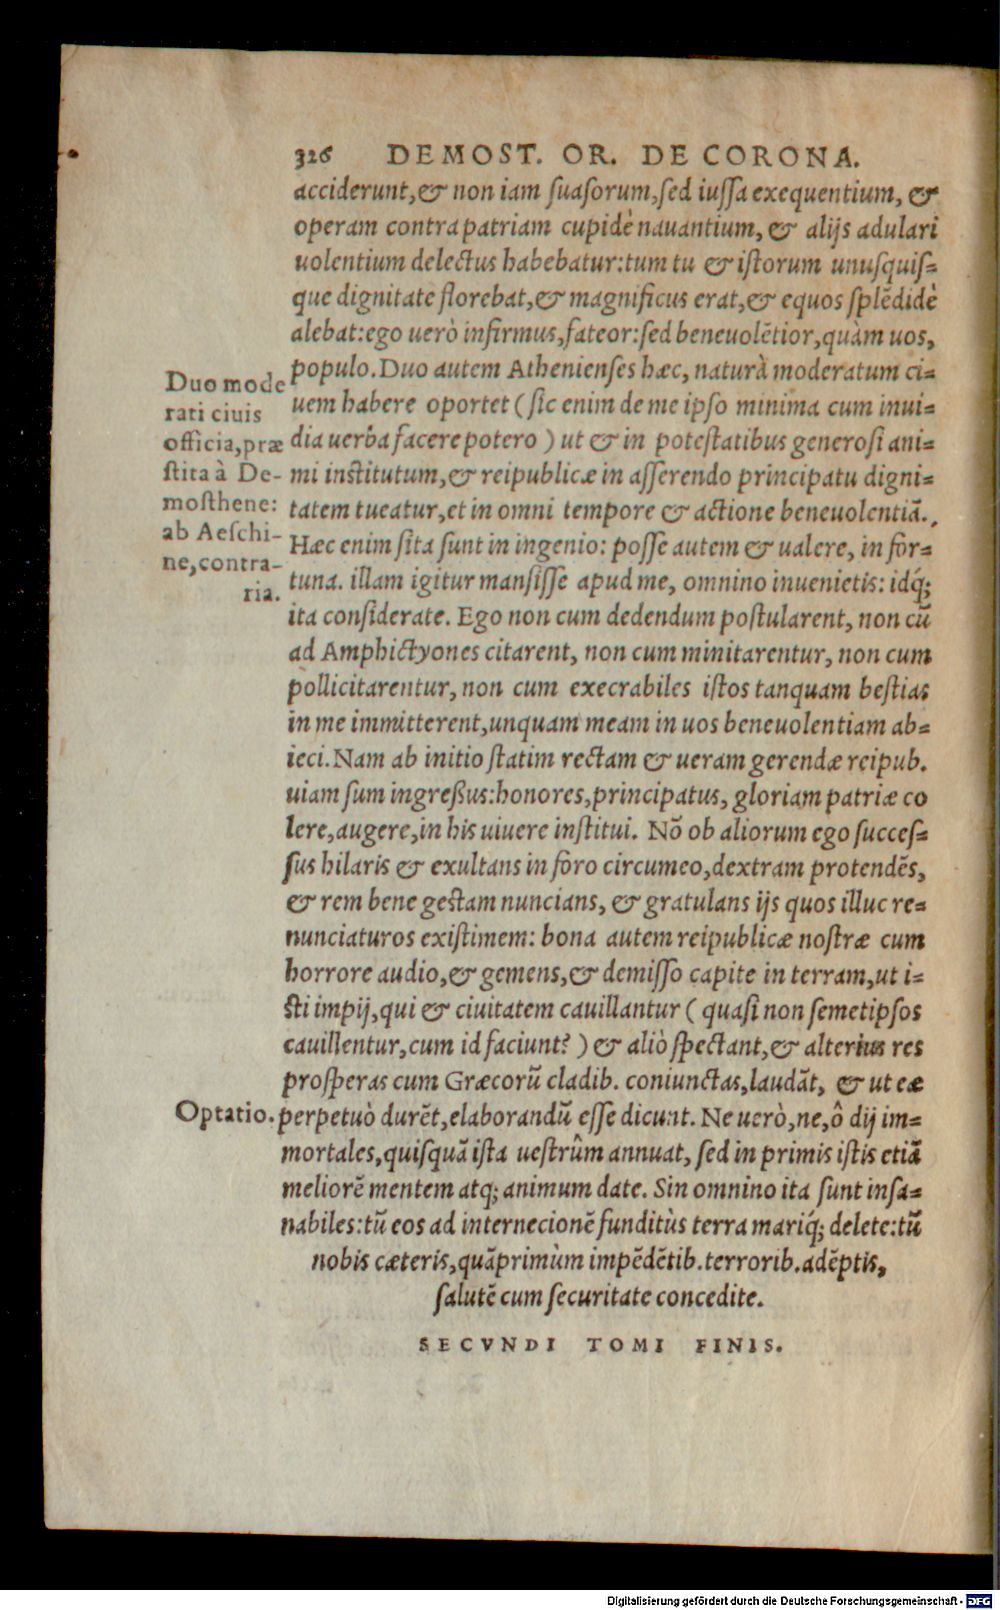 326 DEMOST. OR. DE CORONA.
acciderunt,& non iam ſuaſorum,ſed iuſſa exequentium, &
operam contra patriam cupidè nauantium, & alijs adulari
uolentium delectus habebatur:tum tu & iſtorum unuſquiſ=
que dignitate florebat,& magnificus erat,& equos ſplẽdidè
alebat:ego uerò infirmus,fateor:ſed beneuolẽtior,quàm uos,
populo.Duo autem Athenienſes hæc, naturà moderatum ci=
uem habere oportet ( ſic enim de me ipſo minima cum inui=
dia uerba facere potero ) ut & in poteſtatibus generoſi ani=
mi inſtitutum,& reipublicæ in aſſerendo principatu digni=
tatem tueatur,et in omni tempore & actione beneuolentiã.
Hæc enim ſita ſunt in ingenio: poſſe autem & ualere, in for=
tuna. illam igitur manſiſſe apud me, omnino inuenietis: idq́;
ita conſiderate. Ego non cum dedendum poſtularent, non cũ
ad Amphictyones citarent, non cum minitarentur, non cum
pollicitarentur, non cum execrabiles iſtos tanquam beſtias
in me immitterent,unquam meam in uos beneuolentiam ab=
ieci.Nam ab initio ſtatim rectam & ueram gerendæ reipub.
uiam ſum ingreßus:honores,principatus, gloriam patriæ co
lere,augere,in his uiuere inſtitui. Nõ ob aliorum ego ſucceſ=
ſus hilaris & exultans in foro circumeo,dextram protendẽs,
& rem bene geſtam nuncians, & gratulans ijs quos illuc re=
nunciaturos exiſtimem: bona autem reipublicæ noſtræ cum
horrore audio,& gemens,& demiſſo capite in terram,ut i=
ſti impij,qui & ciuitatem cauillantur ( quaſi non ſemetipſos
cauillentur,cum id faciunt? ) & aliò ſpectant,& alterius res
proſperas cum Græcorũ cladib. coniunctas,laudãt, & ut eæ
perpetuò durẽt,elaborandũ eſſe dicunt. Ne uerò,ne,ô dij im=
mortales,quiſquã iſta ueſtrûm annuat, ſed in primis iſtis etiã
meliorẽ mentem atq; animum date. Sin omnino ita ſunt inſa=
nabiles:tũ eos ad internecionẽ funditùs terra mariq́; delete:tũ
nobis cæteris,quãprimùm impẽdẽtib.terrorib.adẽptis,
ſalutẽ cum ſecuritate concedite.
SECVNDI TOMI FINIS.
Duo mode
rati ciuis
officia,præ
ſtita à De-
moſthene:
ab Aeſchi-
ne,contra-
ria.
Optatio.
Digitalisierung gefördert durch die Deutsche Forschungsgemeinschaft - DFG